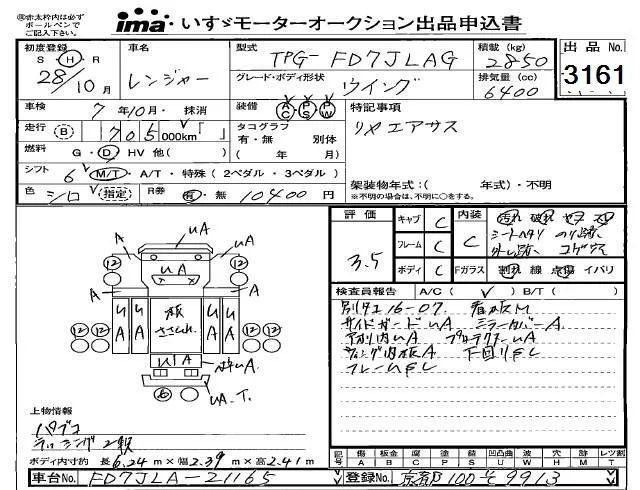 ㊟赤太枠内は必ず
ボールペンで
ご記入下さい。
ima いすゞモーターオークション出品申込書
初度登録 S・H・R 28/10月
車名 レンジャー
型式 TPG-FD7JLAG
積載(kg) 2850
出品No. 3161
グレード・ボディ形状 ウイング
排気量(cc) 6400
車検 7年10月・抹消
装備 AC PS PW
特記事項
リヤエアサス
走行 B 705,000km「 」
タコグラフ 有・無 別体
( 年 月)
燃料 G・D・HV 他( )
シフト 6 M/T・A/T・特殊(2ペダル・3ペダル)
架装物年式:( 年式)・不明
※不明の場合は、不明に○をする。
色 シロ 指定
R券 有・無 10400円
評価 3.5
キャブ C
フレーム C
ボディ C
内装 C
汚れ 破れ ヤケ スレ
シートヘタリ
Fガラス 割れ 線 点傷 イバリ
検査員報告 A/C( ✓ ) B/T( )
サイドガードUA ミラーカバーA
ウィング内板A 下回りFC
フレームFC
A A UA UA
12 12
A A
UA UA UA UA
12 12 12 12
UA A
6
UA-T.
上物情報
ラッシング2段
ボディ内寸約 長6.24m×幅2.39m×高2.41m
記号 傷A 板金B 腐C 塗P 錆S 凹凸曲U 波W 穴H 跡M レツ割T
車台No. FD7JLA-21165
登録No. 京都100せ9913